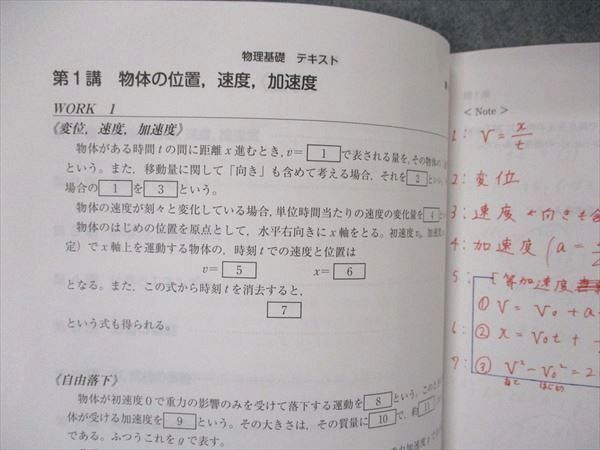 物理基礎 テキスト
第1講 物体の位置，速度，加速度
WORK 1
《変位，速度，加速度》
物体がある時間 t の間に距離 x 進むとき，v= 1 で表される量を，その物体の
という。また，移動量に関して「向き」も含めて考える場合，それを 2
場合の 1 を 3 という。
物体の速度が刻々と変化している場合，単位時間当たりの速度の変化量を 4
物体のはじめの位置を原点として，水平右向きに x 軸をとる。初速度 v₀，加速度
定）で x 軸上を運動する物体の，時刻 t での速度と位置は
v= 5 x= 6
となる。また，この式から時刻 t を消去すると，
7
という式も得られる。
《自由落下》
物体が初速度 0 で重力の影響のみを受けて落下する運動を 8 という。この
体が受ける加速度を 9 という。その大きさは，その質量に 10 で，約 11
である。ふつうこれを g で表す。
< Note >
1: V = x/t
2: 変位
3: 速度 向きも含
4: 加速度 (a =
5 等加速度
① V = V₀ + a
6: ② x = V₀t +
7: ③ V² − V₀² = 2
あと はじめ